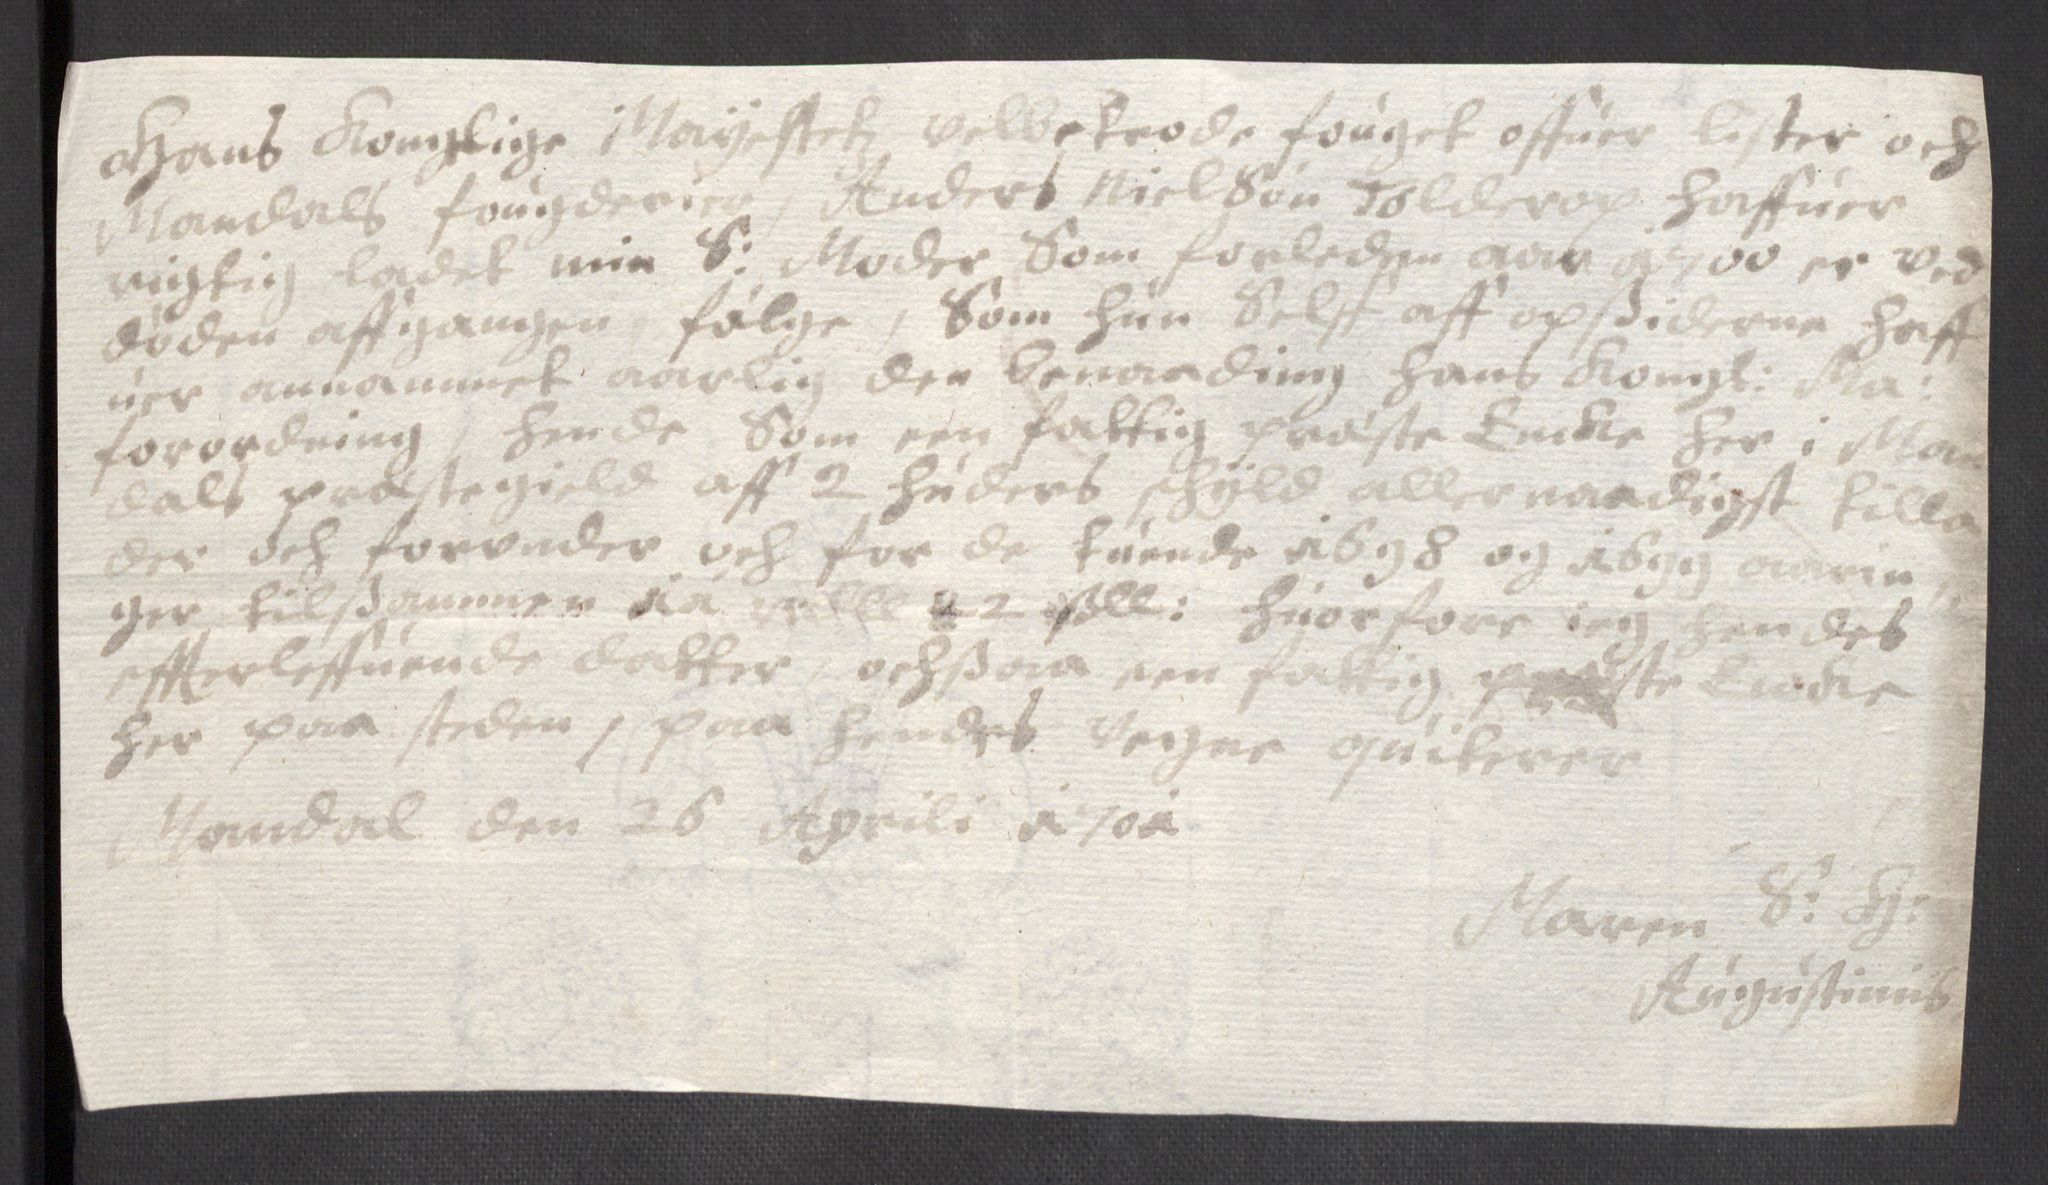 Hans Konglige Mayestets velbetrode fouget offuer lister och
Mandals fougderier, Anders NielSøn Tolderop haffuer
rigtig ladet min S: Moder Som forleden aar 1700 er ved
døden affgangen, følge, Som hun Selff aff opßiderne haff
uer annammet aarlig den benaading hans Kongl: Ma:
forordning, hende Som een fattig præste Encke her i Man
dals præstegield aff 2 huders schyld allernaadigst tilla
der och forunder och for de tuende 1698 og 1699 aarin
ger tilßammen 22 hvorfore ieg hendes
effterleffuende datter, ochßaa een fattig præste Encke
her paa steden, paa hendes Vegne quiterer
Mandal den 26 Aprili 1701
Maren S: H:
Augustinus